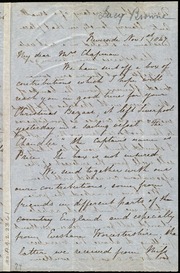 Mary Browne
Nov. 1st 1847
My dear Mrs Chapman
We have sent off a box of
contributions which I hope will
reach you in time for your
Christmas Bazaar. It left Liverpool
yesterday in a sailing packet the
the captain's name is
Price. The box is not insured.
We send together with our
own contributions, some from
friends in different parts of the
country England and especially
from Evesham Worcestershire the
latter we received from